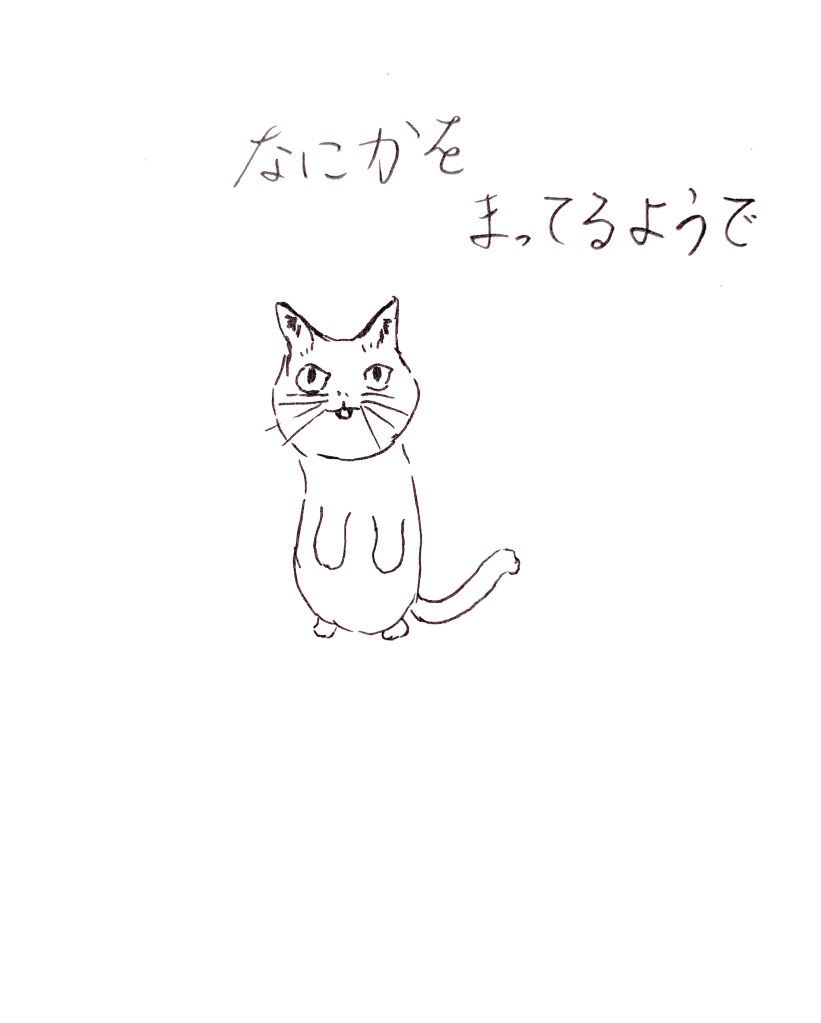 なにかを
まってるようで